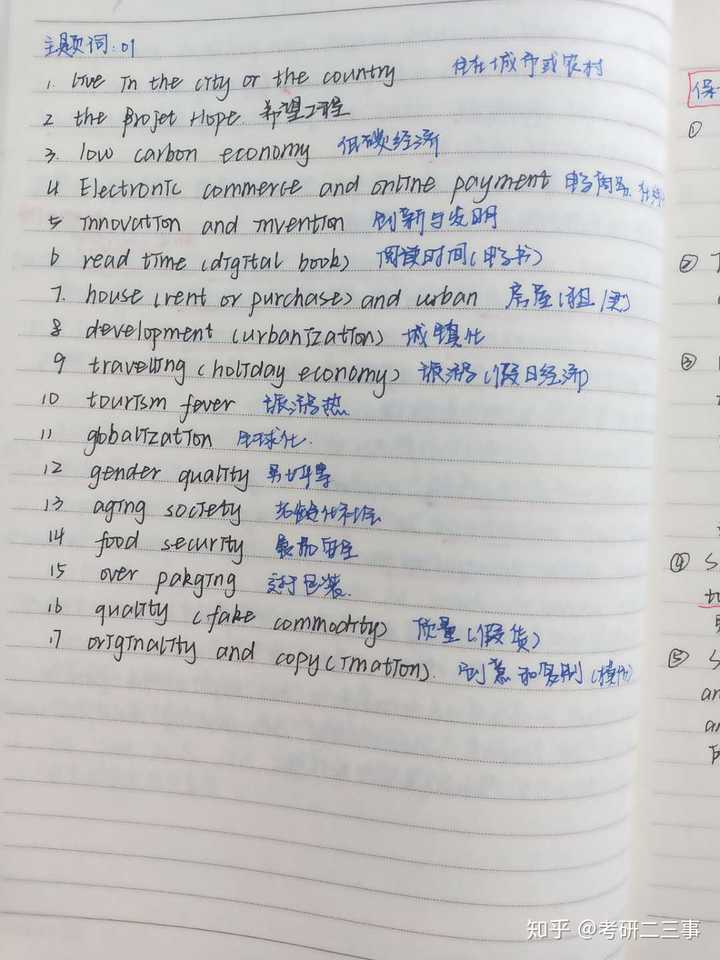 主题词:01
1. live in the city or the country 住在城市或农村
2 the Projet Hope. 希望工程
3. low carbon economy 低碳经济
4 Electronic commerce and online payment 电子商务
5 innovation and invention 创新与发明
6 read time (digital book) 阅读时间(电子书)
7. house (rent or purchase) and urban 房屋(租/买)
8 development (urbanization) 城镇化
9 traveling (holiday economy) 旅游(假日经济)
10 tourism fever 旅游热
11 globalization 全球化.
12 gender quality 男女平等
13 aging society 老龄化社会
14 food security 食品安全
15 over pakging 过度包装.
16 quality (fake commodity) 质量(假货)
17 originality and copy (imation). 创意和复制(模仿)
保
①
②
③
④ S
⑤ S
an
知乎 @考研二三事